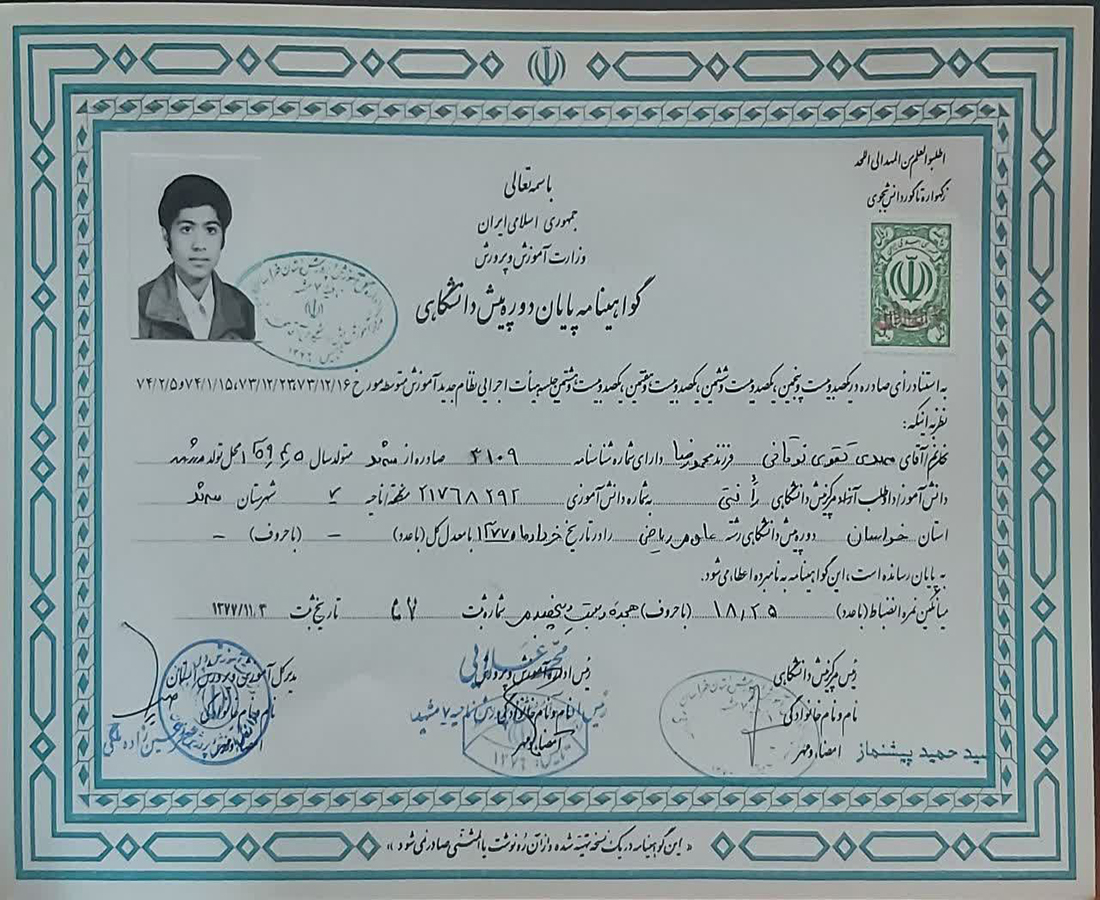 اطلبوا العلم من المهد الی اللحد
ز گهواره تا گور دانش بجوی
باسمه تعالی
جمهوری اسلامی ایران
وزارت آموزش و پرورش
گواهینامه پایان دوره پیش دانشگاهی
به استناد رأی صادره در یکصد و بیست و پنجمین، یکصد و بیست و ششمین، یکصد و بیست و هفتمین، یکصد و بیست و هشتمین جلسه هیأت اجرایی نظام جدید آموزش متوسطه مورخ ۷۳/۱۲/۱۶، ۷۳/۱۲/۲۳، ۷۴/۱/۱۵ و ۷۴/۲/۵
نظر به اینکه:
خانم/آقای مهدی تقوی فرزند محمدرضا دارای شماره شناسنامه ۴۱۰۹ صادره از مشهد متولد سال محل تولد مشهد
دانش آموز/داوطلب آزاد مرکز پیش دانشگاهی رأفتی به شماره دانش آموزی ۲۱۷۶۸۲۹۲ منطقه/ناحیه ۷ شهرستان مشهد
استان خراسان دوره پیش دانشگاهی رشته علوم ریاضی را در تاریخ خرداد ماه ۱۳۷۷ با معدل کل (با عدد) – (با حروف) –
به پایان رسانده است، این گواهینامه به نامبرده اعطاء می‌شود.
میانگین نمره انضباط (با عدد) ۱۸,۲۵ (با حروف) هجده و بیست و پنج صدم شماره ثبت ۵۷ تاریخ ثبت ۱۳۷۷/۱۱/۳
رئیس مرکز پیش دانشگاهی
نام و نام خانوادگی
امضاء و مهر
سید حمید پیشنماز
رئیس اداره آموزش و پرورش
نام و نام خانوادگی
امضاء و مهر
ناحیه ۷ مشهد
مدیر کل آموزش و پرورش استان
نام و نام خانوادگی
امضاء و مهر
« این گواهینامه در یک نسخه تهیه شده و از آن رونوشت یا المثنی صادر نمی شود »